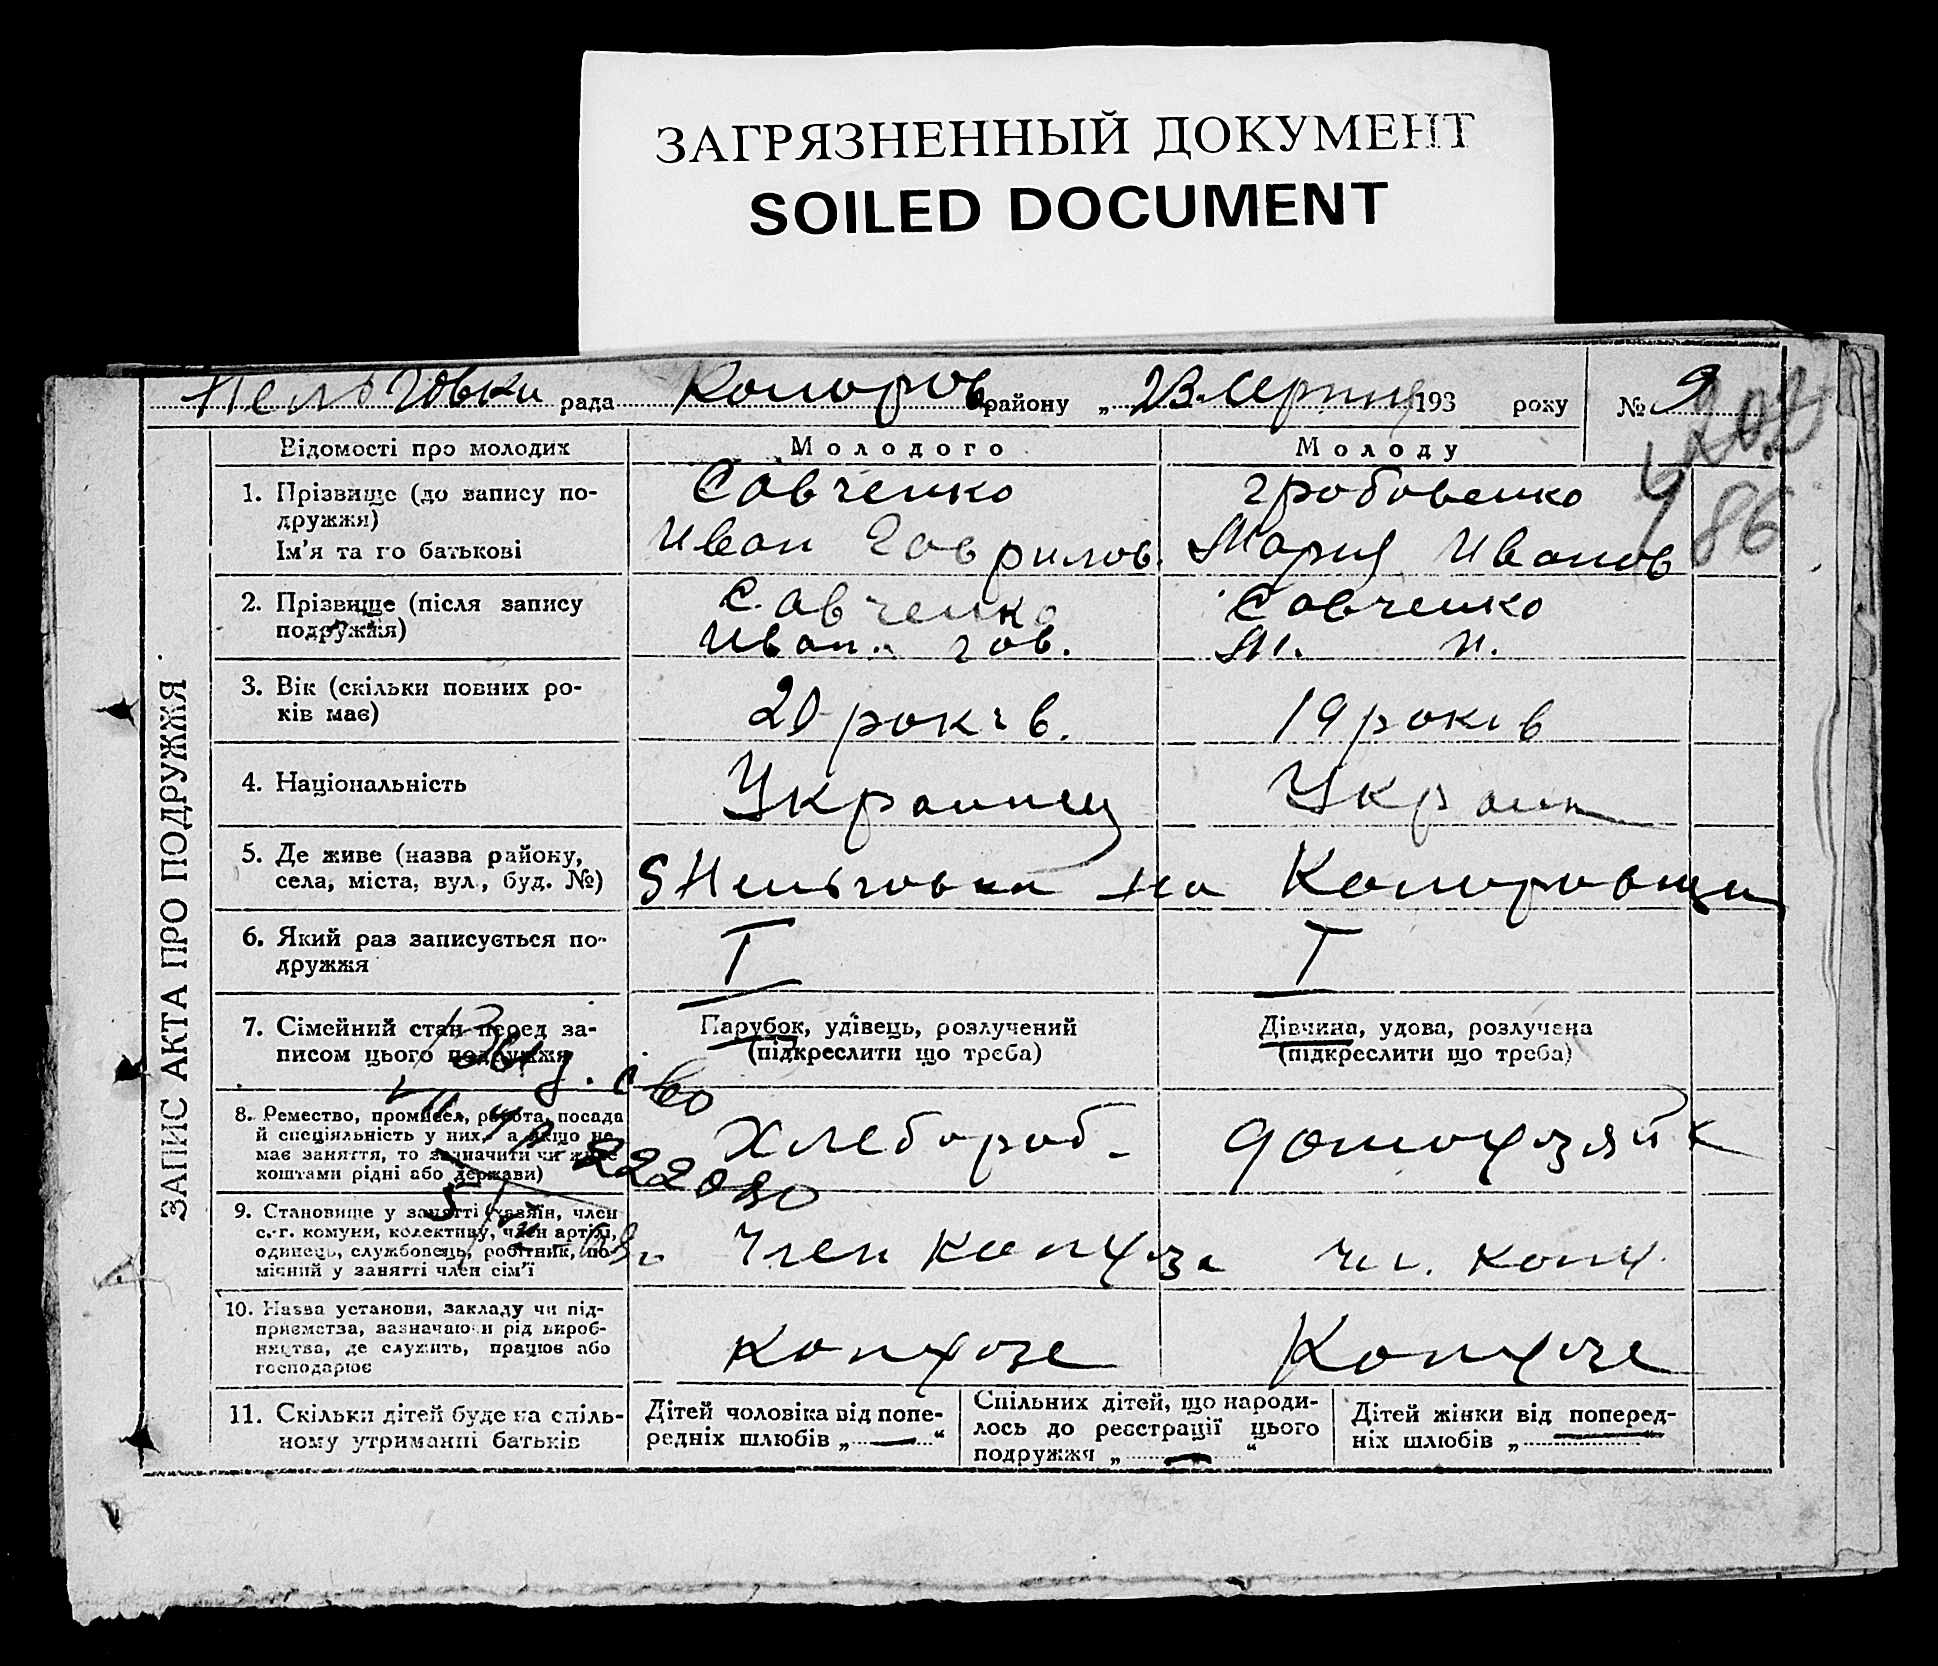 ЗАГРЯЗНЕННЫЙ ДОКУМЕНТ
SOILED DOCUMENT
рада району „ 23 193 року № 9
203
86
ЗАПИС АКТА ПРО ПОДРУЖЖЯ
Відомості про молодих Молодого Молоду
1. Прізвище (до запису по-
дружжя)
Ім'я та по батькові
Савченко
Иван Гаврилов.
Гробовенко
Мария Иванов
2. Прізвище (після запису
подружжя)
Савченко
Иван. Гав.
Савченко
М. И.
3. Вік (скільки повних ро-
ків має)
20 років.
19 років
4. Національність
Украинец
Украин
5. Де живе (назва району,
села, міста, вул., буд. №)
6. Який раз записується по-
дружжя
I I
7. Сімейний стан перед за-
писом цього подружжя
Парубок, удівець, розлучений
(підкреслити що треба)
Дівчина, удова, розлучена
(підкреслити що треба)
8. Ремество, промисел, работа, посада
й спеціяльність у них, а якщо не
має заняття, то зазначити чи живе
коштами рідні або держави)
Хлебороб
домохозяйк
222080
9. Становище у занятті (хазяїн, член
с.-г. комуни, колективу, член артілі,
одинець, службовець, робітник, по-
мічний у занятті член сім'ї
Член колхоза
чл. колх.
10. Назва установи, закладу чи під-
приємства, зазначаючи рід вироб-
ництва, де служить, працює або
господарює
колхозе
Колхозе
11. Скільки дітей буде на спіль-
ному утриманні батьків
Дітей чоловіка від попе-
редніх шлюбів „ — “
Спільних дітей, що народи-
лось до реєстрації цього
подружжя „ — “
Дітей жінки від поперед-
ніх шлюбів „ “